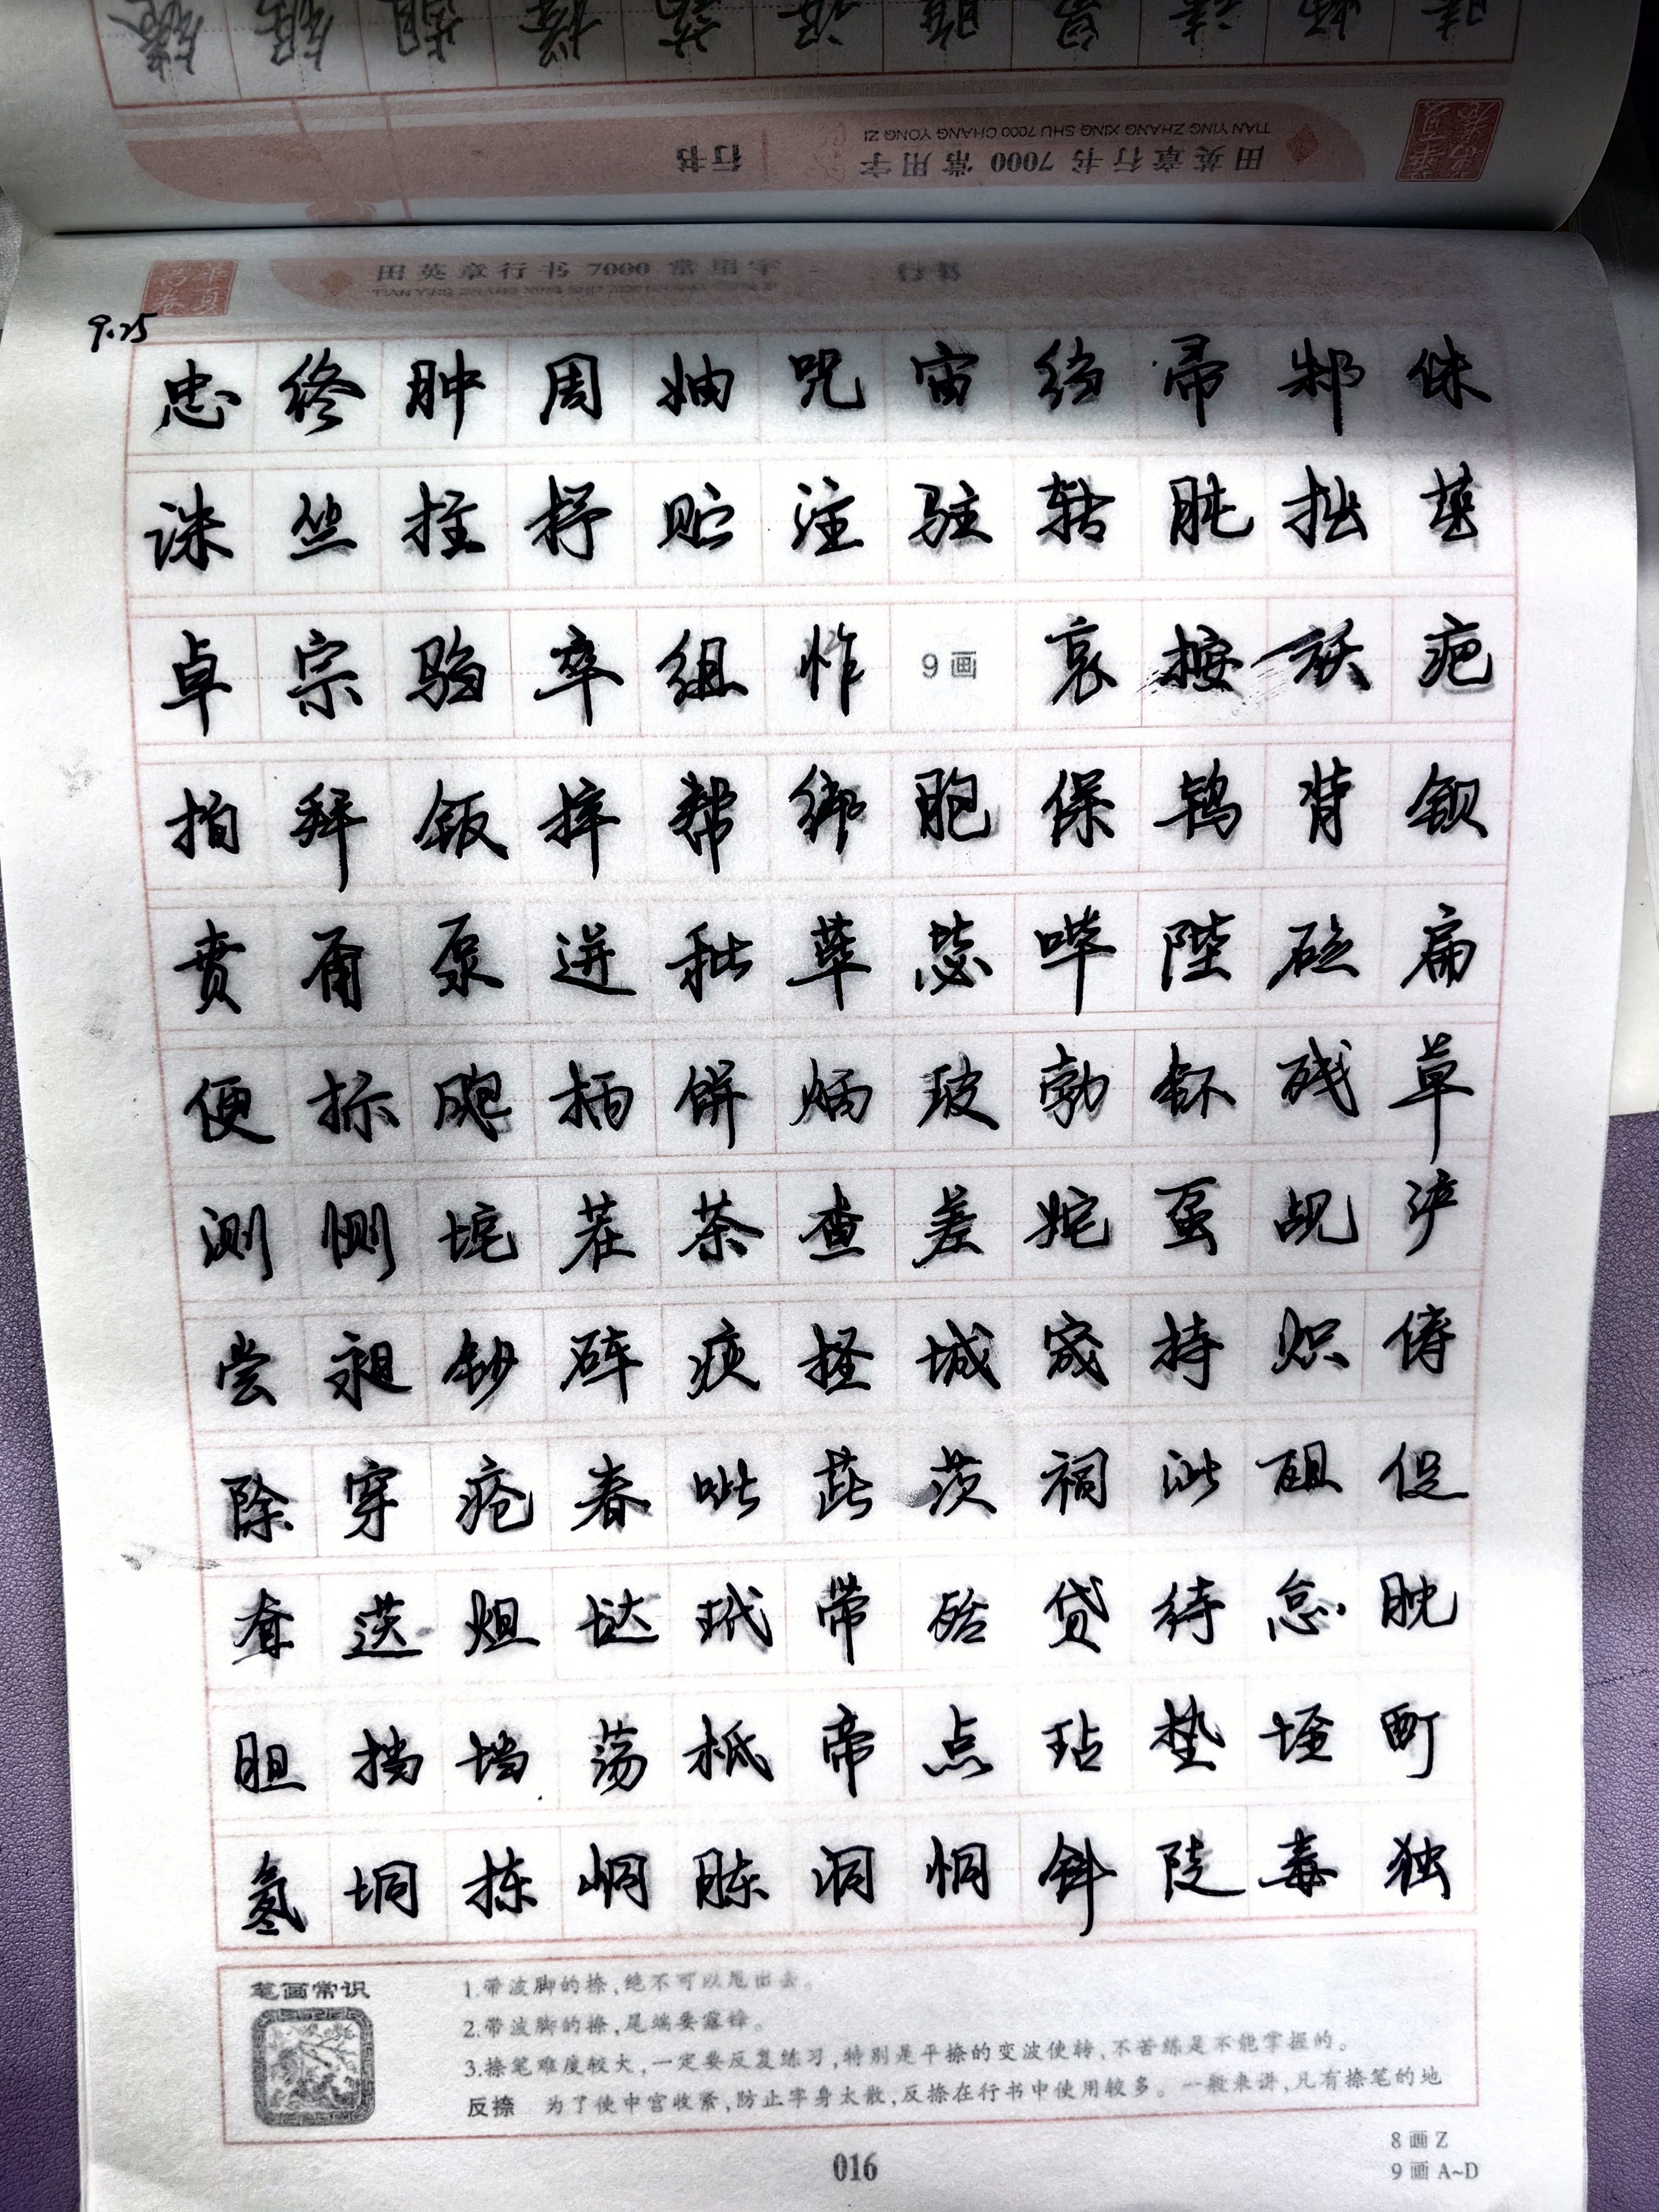 田英章行书7000常用字
TIAN YING ZHANG XING SHU 7000 CHANG YONG ZI
行书
田英章行书 7000 常用字
行书
9.25
忠终肿周妯咒宙绉帚邾侏
诛竺拄杼贮注驻转肫拙茁
卓宗驺卒组怍9画哀按袄疤
柏拜钣帮绑胞保鸨背钡
贲甭泵迸秕荜毖哔陛砭扁
便标飑柄饼炳玻勃钚残草
测恻垞茬茶查差姹虿觇浐
尝昶钞砗疢柽城宬持炽俦
除穿疮春呲茈茨祠泚殂促
耷荙炟垯玳带殆贷待怠眈
胆挡垱荡柢帝点玷垫垤町
氡垌栋峒胨洞恫钭陡毒独
笔画常识
1.带波脚的捺,绝不可以甩出去。
2.带波脚的捺,尾端要露锋。
3.捺笔难度较大,一定要反复练习,特别是平捺的变波使转,不苦练是不能掌握的。
反捺 为了使中宫收紧,防止字身太散,反捺在行书中使用较多。一般来讲,凡有捺笔的地
016
8画Z
9画A~D